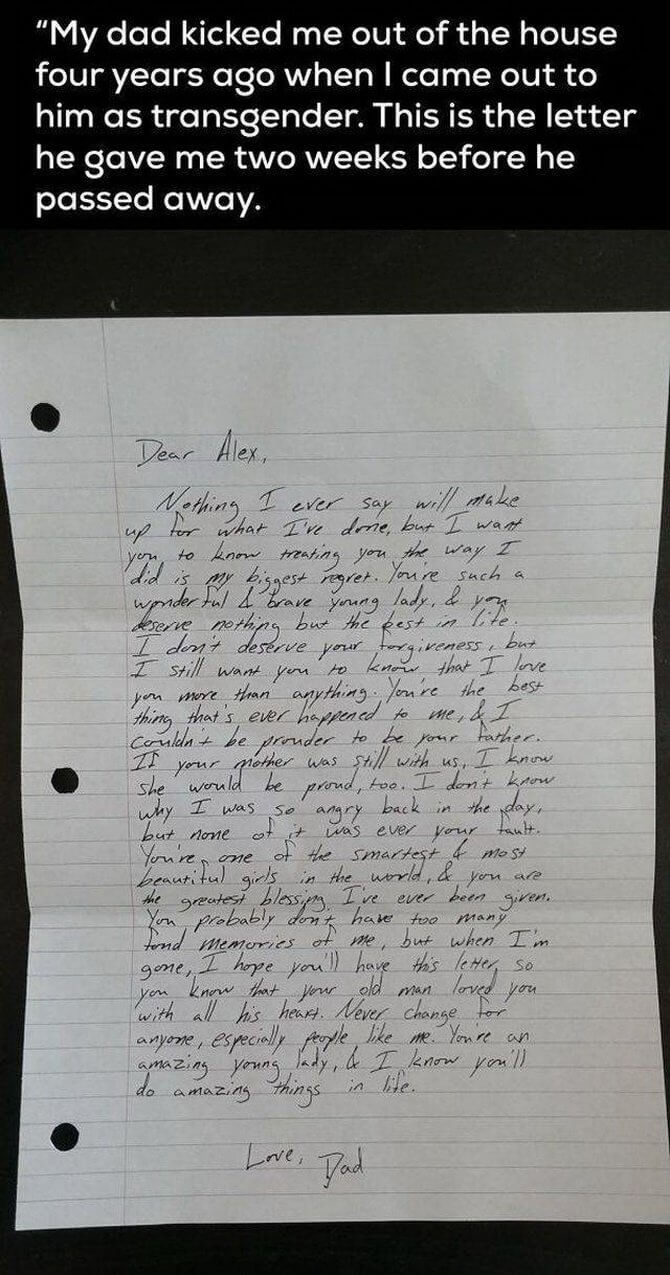 “My dad kicked me out of the house
four years ago when I came out to
him as transgender. This is the letter
he gave me two weeks before he
passed away.
Dear Alex,
Nothing I ever say will make
up for what I've done, but I want
you to know treating you the way I
did is my biggest regret. You're such a
wonderful & brave young lady, & you
deserve nothing but the best in life.
I don't deserve your forgiveness, but
I still want you to know that I love
you more than anything. You're the best
thing that's ever happened to me, & I
couldn't be prouder to be your father.
If your mother was still with us, I know
she would be proud, too. I don't know
why I was so angry back in the day,
but none of it was ever your fault.
You're one of the smartest & most
beautiful girls in the world, & you are
the greatest blessing I've ever been given.
You probably don't have too many
fond memories of me, but when I'm
gone, I hope you'll have this letter, so
you know that your old man loved you
with all his heart. Never change for
anyone, especially people like me. You're an
amazing young lady, & I know you'll
do amazing things in life.
Love, Dad